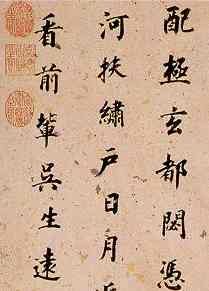 配極玄都閟憑
河扶繡戶日月
看前輩吳生遠